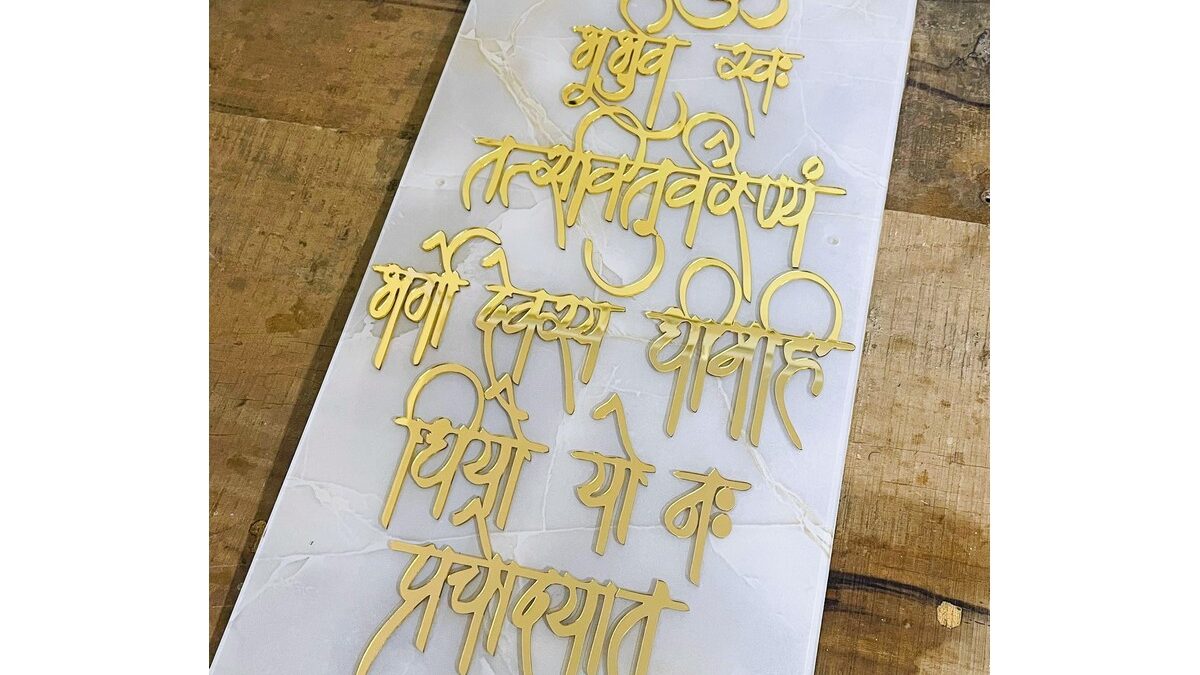 भूर्भुव स्वः
तत्सवितुर्वरेण्यं
भर्गो देवस्य धीमहि
धियो यो नः
प्रचोदयात